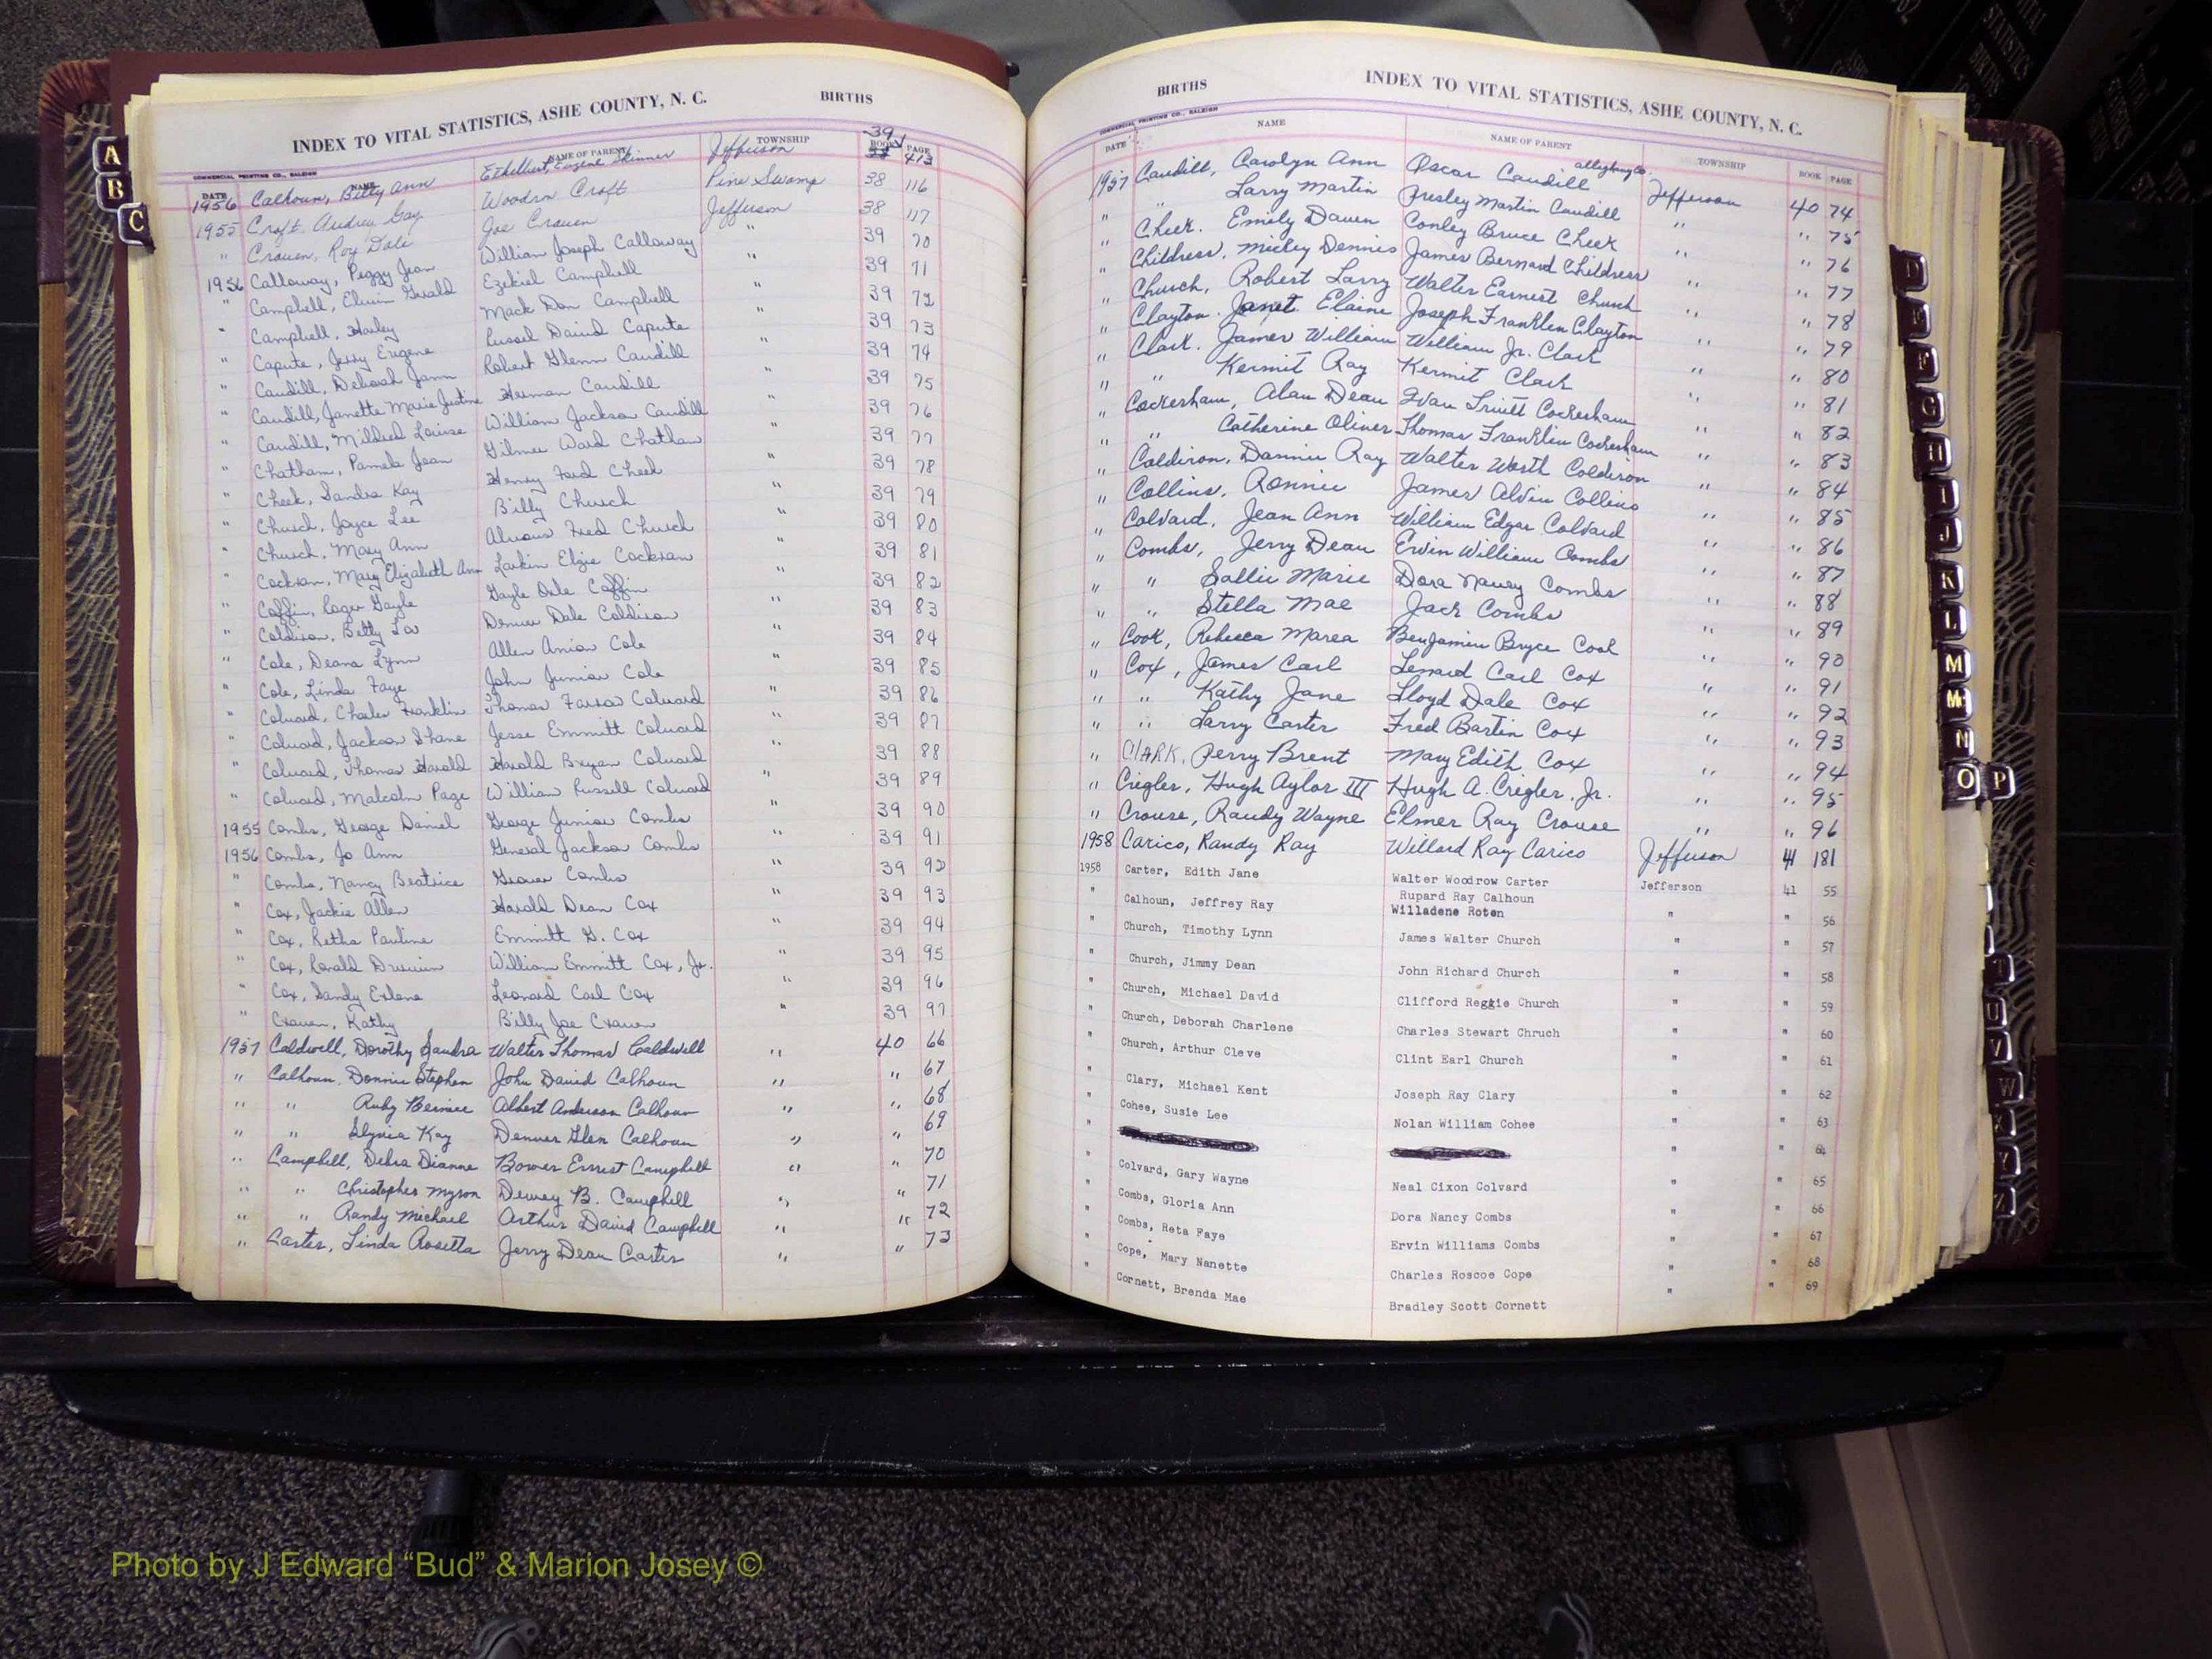 INDEX TO VITAL STATISTICS, ASHE COUNTY, N. C. BIRTHS
COMMERCIAL PRINTING CO., RALEIGH
DATE NAME NAME OF PARENT TOWNSHIP BOOK PAGE
1956 Calhoun, Betty Ann Ethelbert Eugene Skinner Jefferson 39 413
1955 Croft, Audrey Gay Woodrow Croft Pine Swamp 38 116
" Craven, Roy Dale Joe Craven Jefferson 38 117
1956 Calloway, Peggy Jean William Joseph Calloway " 39 70
" Campbell, Elwin Gerald Ezekiel Campbell " 39 71
" Campbell, Harley Mack Don Campbell " 39 72
" Capute, Jerry Eugene Russel David Capute " 39 73
" Caudill, Deborah Jann Robert Glenn Caudill " 39 74
" Caudill, Janette Marie Justine Herman Caudill " 39 75
" Caudill, Mildred Louise William Jackson Caudill " 39 76
" Chatham, Pamela Jean Gilmer Ward Chatham " 39 77
" Cheek, Sandra Kay Henry Ford Cheek " 39 78
" Church, Joyce Lee Billy Church " 39 79
" Church, Mary Ann Fred Church " 39 80
" Cockran, Mary Elizabeth Ann Larkin Elgie Cockran " 39 81
" Coffin, Roger Gayle Gayle Dale Coffin " 39 82
" Coldiron, Betty Lou Denver Dale Coldiron " 39 83
" Cole, Deana Lynn Allen Anion Cole " 39 84
" Cole, Linda Faye John Junior Cole " 39 85
" Colvard, Charles Franklin Thomas Farrow Colvard " 39 86
" Colvard, Jackson Shane Jesse Emmitt Colvard " 39 87
" Colvard, Thomas Harold Harold Bryan Colvard " 39 88
" Colvard, Malcolm Page William Russell Colvard " 39 89
1955 Combs, George Daniel George Junior Combs " 39 90
1956 Combs, Jo Ann General Jackson Combs " 39 91
" Combs, Nancy Beatrice Grover Combs " 39 92
" Cox, Jackie Allen Harold Dean Cox " 39 93
" Cox, Retha Pauline Emmitt G. Cox " 39 94
" Cox, Ronald William Emmitt Cox, Jr. " 39 95
" Cox, Sandy Erlene Leonard Carl Cox " 39 96
" Craven, Kathy Billy Joe Craven " 39 97
1957 Caldwell, Dorothy Sandra Walter Thomas Caldwell " 40 66
" Calhoun, Donnie Stephen John David Calhoun " " 67
" " Ruby Bernice Albert Anderson Calhoun " " 68
" " Slyvia Kay Denver Glen Calhoun " " 69
" Campbell, Debra Dianne Bower Ernest Campbell " " 70
" " Christopher Myron Dewey B. Campbell " " 71
" " Randy Michael Arthur David Campbell " " 72
" Carter, Linda Rosetta Jerry Dean Carter " " 73
BIRTHS INDEX TO VITAL STATISTICS, ASHE COUNTY, N. C.
COMMERCIAL PRINTING CO., RALEIGH
DATE NAME NAME OF PARENT TOWNSHIP BOOK PAGE
1957 Caudill, Carolyn Ann Oscar Caudill Alleghany Co. Jefferson 40 74
" " Larry Martin Presley Martin Caudill " " 75
" Cheek, Emily Dawn Conley Bruce Cheek " " 76
" Childress, Mickey Dennis James Bernard Childress " " 77
" Church, Robert Larry Walter Earnest Church " " 78
" Clayton, Janet Elaine Joseph Franklin Clayton " " 79
" Clark, James William William Jr. Clark " " 80
" " Kermit Ray Kermit Clark " " 81
" Cockerham, Alan Dean Ivan Truitt Cockerham " " 82
" " Catherine Oliver Thomas Franklin Cockerham " " 83
" Coldiron, Dannie Ray Walter Worth Coldiron " " 84
" Collins, Ronnie James Alvin Collins " " 85
" Colvard, Jean Ann William Edgar Colvard " " 86
" Combs, Jerry Dean Ervin William Combs " " 87
" " Sallie Marie Dora Nancy Combs " " 88
" " Stella Mae Jack Combs " " 89
" Cook, Rebecca Marea Benjamin Bryce Cook " " 90
" Cox, James Carl Lenard Carl Cox " " 91
" " Kathy Jane Lloyd Dale Cox " " 92
" " Larry Carter Fred Bartin Cox " " 93
" ClARK, Perry Brent Mary Edith Cox " " 94
" Crigler, Hugh Aylor III Hugh A. Crigler, Jr. " " 95
" Crouse, Randy Wayne Elmer Ray Crouse " " 96
1958 Carico, Randy Ray Willard Ray Carico Jefferson 41 181
1958 Carter, Edith Jane Walter Woodrow Carter Jefferson 41 55
" Calhoun, Jeffrey Ray Rupard Ray Calhoun Willadene Roten " " 56
" Church, Timothy Lynn James Walter Church " " 57
" Church, Jimmy Dean John Richard Church " " 58
" Church, Michael David Clifford Reggie Church " " 59
" Church, Deborah Charlene Charles Stewart Chruch " " 60
" Church, Arthur Cleve Clint Earl Church " " 61
" Clary, Michael Kent Joseph Ray Clary " " 62
" Cohee, Susie Lee Nolan William Cohee " " 63
" " " 64
" Colvard, Gary Wayne Neal Cixon Colvard " " 65
" Combs, Gloria Ann Dora Nancy Combs " " 66
" Combs, Reta Faye Ervin Williams Combs " " 67
" Cope, Mary Nanette Charles Roscoe Cope " " 68
" Cornett, Brenda Mae Bradley Scott Cornett " " 69
A
B
C
D
E
F
G
H
I
J
K
L
M
Mc
N
O P
T
U
V
W
Y
Photo by J Edward “Bud” & Marion Josey ©